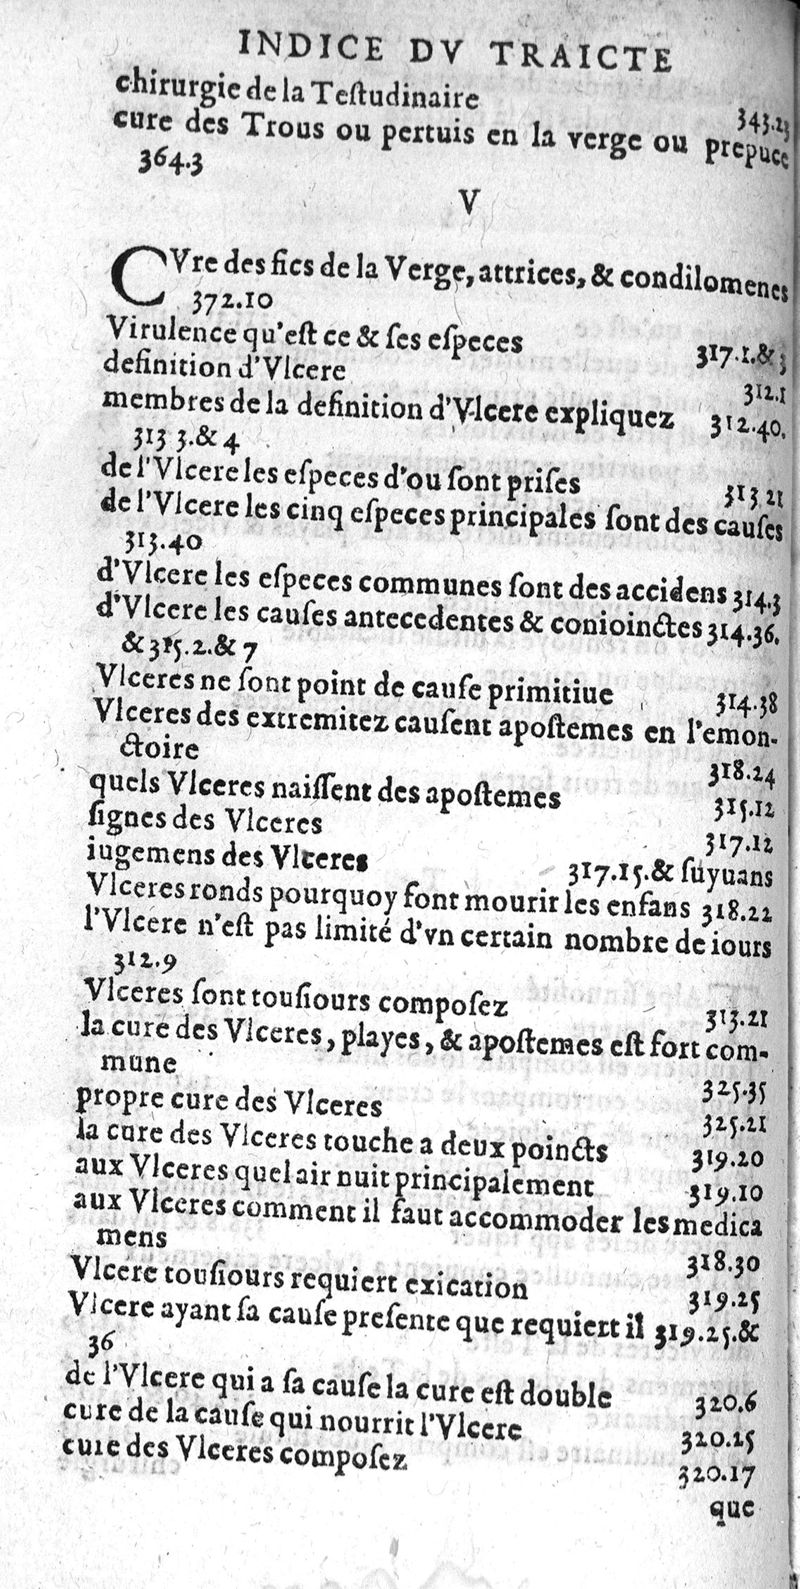 INDICE DV TRAICTE
chirurgie de la Teſtudinaire 343.23
cure des Trous ou pertuis en la verge ou prepuce
364.3
V
CVre des fics de la Verge, attrices, & condilomenes
372.10
Virulence qu'eſt ce & ſes eſpeces 317.1.& 3
definition d'Vlcere 312.1
membres de la definition d'Vlcere expliquez 312.40.
313 3.& 4
de l'Vlcere les eſpeces d'ou ſont priſes 313 21
de l'Vlcere les cinq eſpeces principales ſont des cauſes
313.40
d'Vlcere les eſpeces communes ſont des accidens 314.3
d'Vlcere les cauſes antecedentes & conioinctes 314.36.
& 315.2.& 7
Vlceres ne ſont point de cauſe primitiue 314.38
Vlceres des extremitez cauſent apoſtemes en l'emon-
ctoire 318.24
quels Vlceres naiſſent des apoſtemes 315.12
ſignes des Vlceres 317.12
iugemens des Vlceres 317.15.& ſuyuans
Vlceres ronds pourquoy font mourir les enfans 318.22
l'Vlcere n'eſt pas limité d'vn certain nombre de iours
312.9
Vlceres ſont touſiours compoſez 313.21
la cure des Vlceres, playes, & apoſtemes eſt fort com-
mune 325.35
propre cure des Vlceres 325.21
la cure des Vlceres touche a deux poincts 319.20
aux Vlceres quel air nuit principalement 319.10
aux Vlceres comment il faut accommoder les medica
mens 318.30
Vlcere touſiours requiert exication 319.25
Vlcere ayant ſa cauſe preſente que requiert il 319.25.&
36
de l'Vlcere qui a ſa cauſe la cure eſt double 320.6
cure de la cauſe qui nourrit l'Vlcere 320.15
cure des Vlceres compoſez 320.17
que